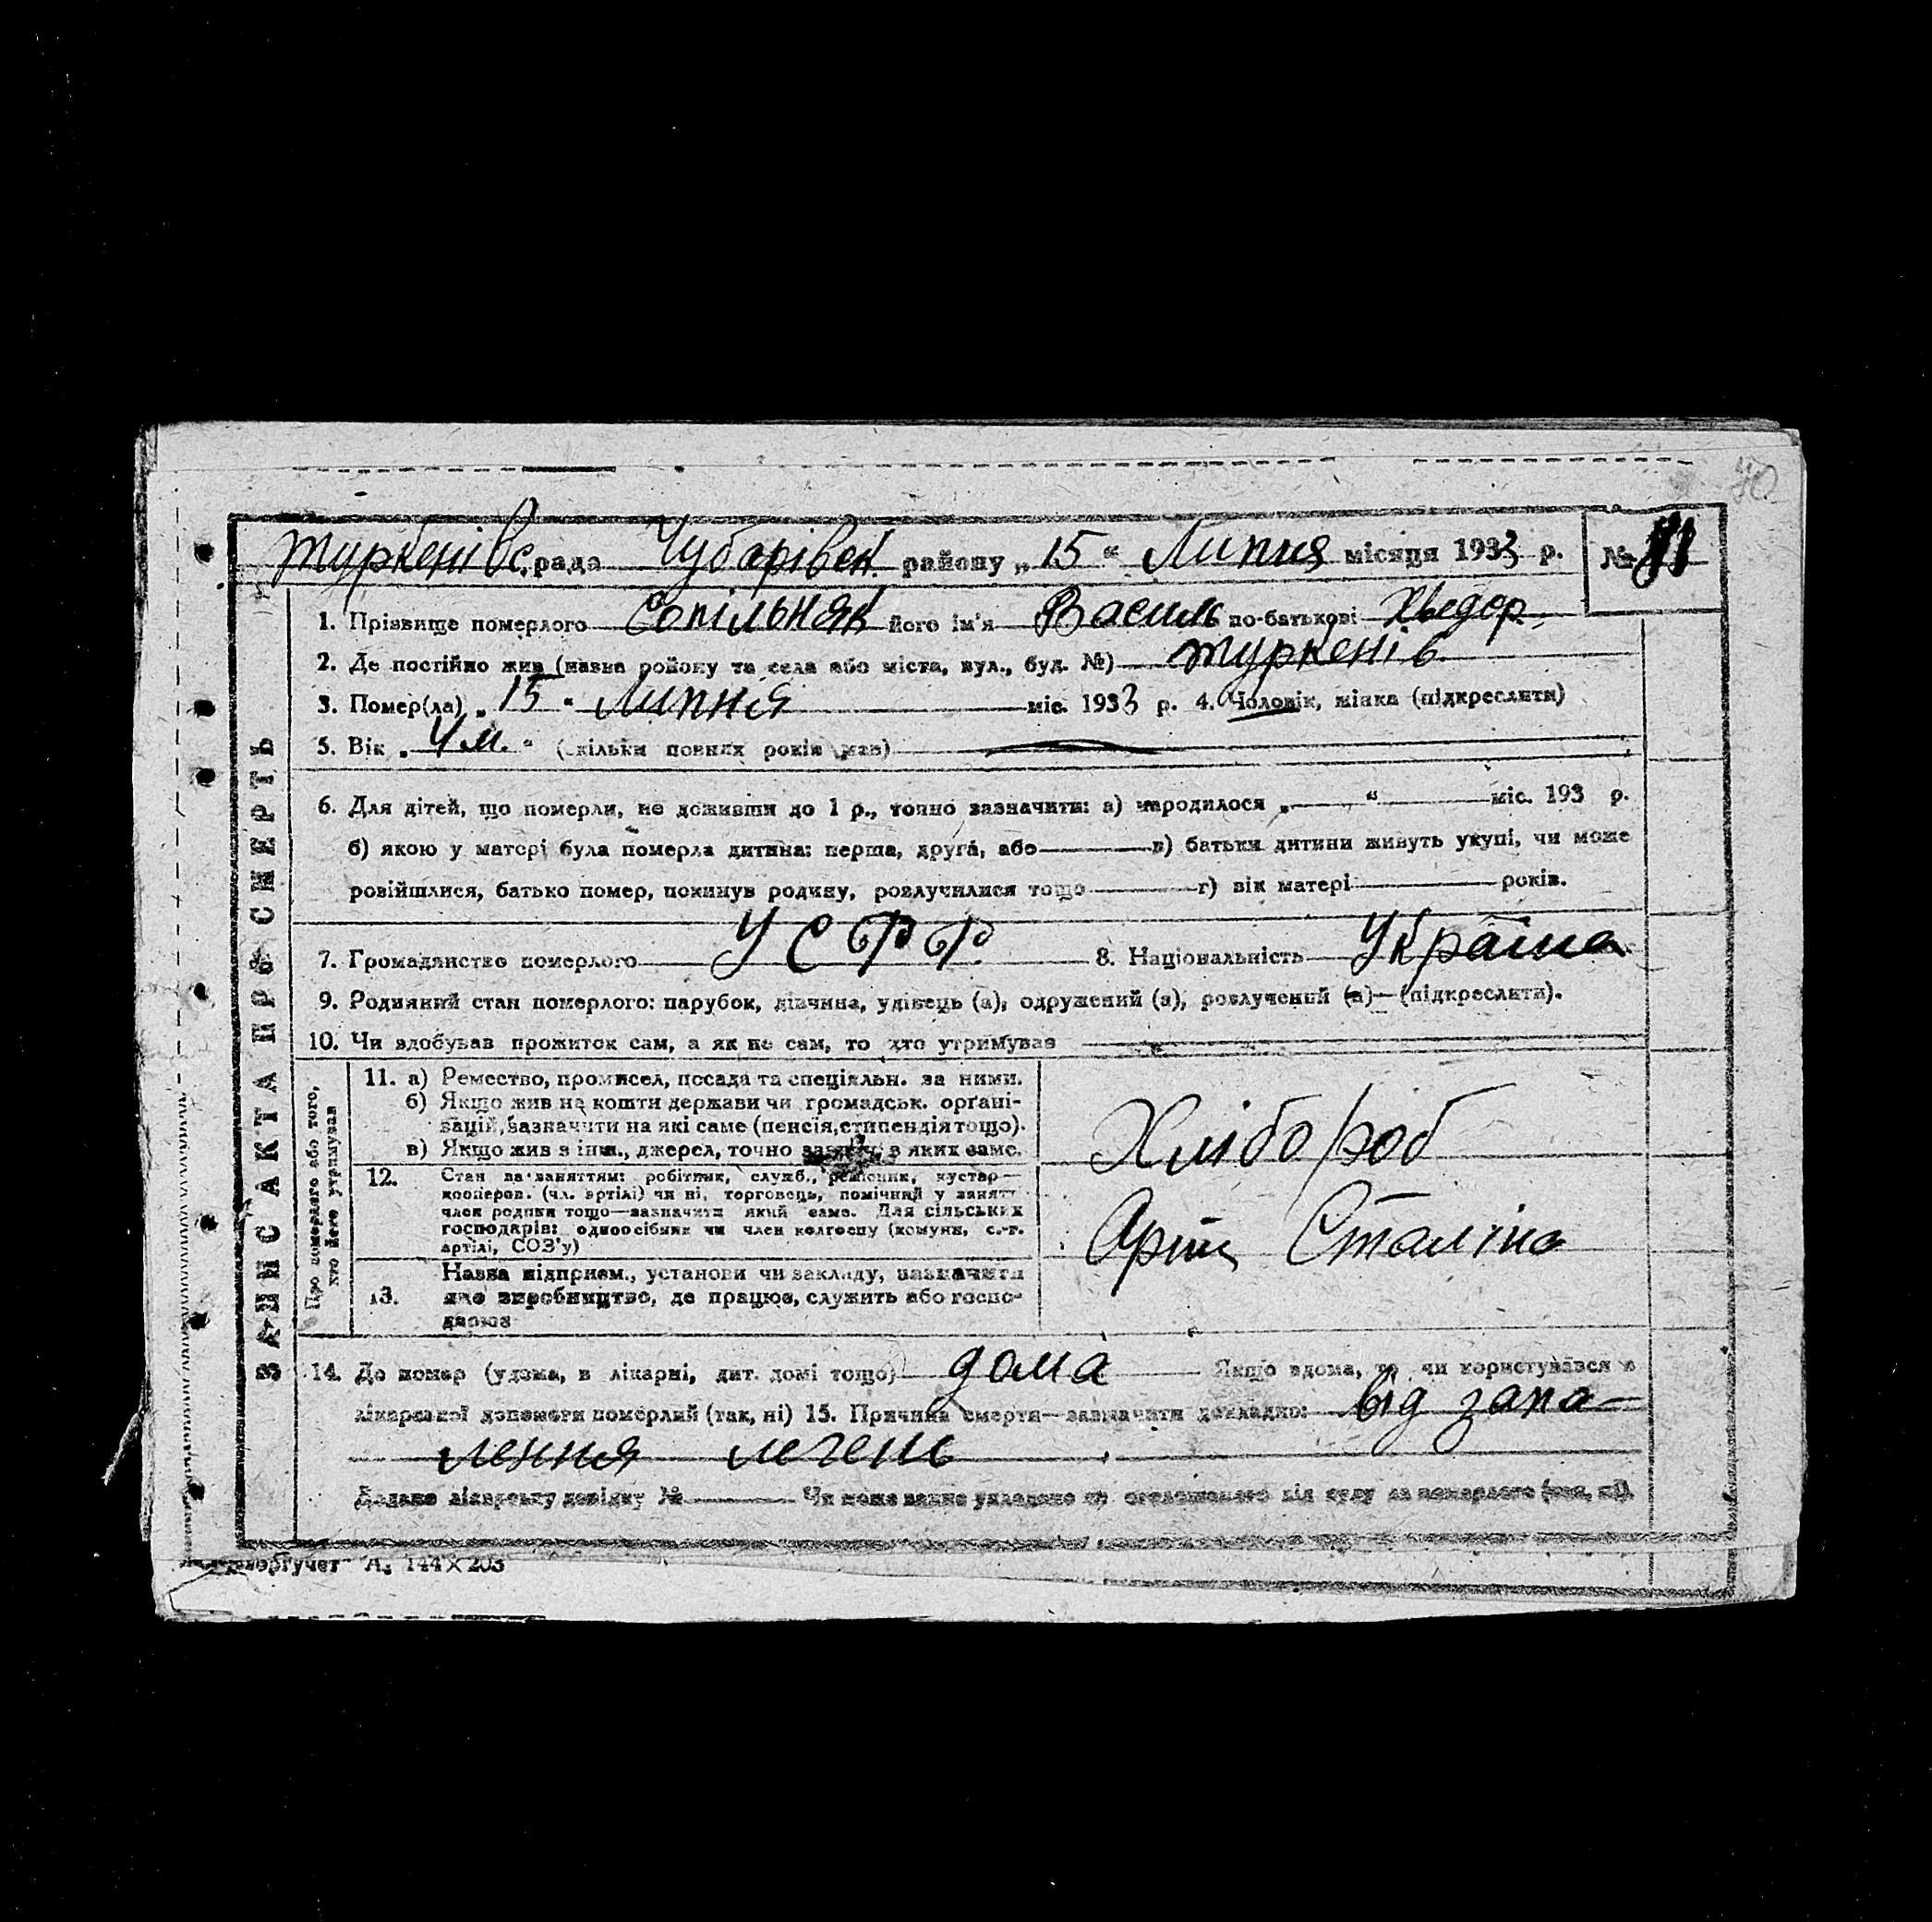 70
Туркенівс. рада Чубарівск. району „15" Липня місяця 1933 р. №
1. Прізвище померлого Сопільняк його ім'я Василь по-батькові Хведор.
2. Де постійно жив (назва району та села або міста, вул., буд. №) Туркенів.
3. Помер(ла) „15" Липня міс. 1933 р. 4. Чоловік, жінка (підкреслити)
5. Вік „4 м." (скільки повних років мав)
6. Для дітей, що померли, не доживши до 1 р., точно зазначити: а) народилося „ " міс. 193 р.
б) якою у матері була померла дитина: перша, друга, або в) батьки дитини живуть укупі, чи може
розійшлися, батько помер, покинув родину, розлучилися тощо г) вік матері років.
7. Громадянство померлого УСРР. 8. Національність Україна
9. Родинний стан померлого: парубок, дівчина, удівець (а), одружений (а), розлучений (а)—(підкреслити).
10. Чи здобував прожиток сам, а як не сам, то хто утримував
ЗАПИС АКТА ПРО СМЕРТЬ
Про померлого або того,
хто його утримував
11. а) Ремество, промисел, посада та спеціяльн. за ними.
б) Якщо жив на кошти держави чи громадськ. органі-
зацій, зазначити на які саме (пенсія, стипендія тощо).
в) Якщо жив з інш., джерел, точно зазнач. з яких саме.
Хлібороб
12. Стан за заняттям: робітник, служб., ремісник, кустар—
кооперов. (чл. артілі) чи ні, торговець, помічний у занятт.
член родини тощо—зазначити який саме. Для сільських
господарів: одноосібник чи член колгоспу (комуни, с.-г.
артілі, СОЗ'у)
Арт. Сталіна
13. Назва підприєм., установи чи закладу, зазначити
яке виробництво, де працює, служить або госпо-
дарює
14. Де помер (удома, в лікарні, дит. домі тощо) дома Якщо вдома, то чи користувався з
лікарської допомоги померлий (так, ні) 15. Причина смерти—зазначити докладно: від запа-
лення легень
Додано лікарську довідку № Чи може бути
А. 144×203